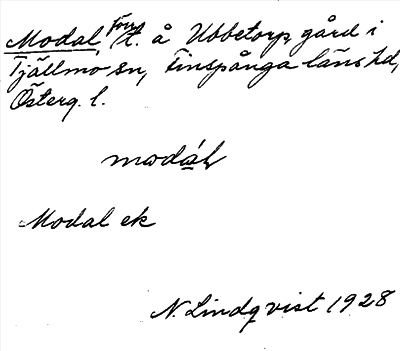 Modal, Förr t. å Ubbetorp, gård i
Tjällmo sn, Finspånga läns hd,
Österg. l.
modáL
Modal ek
N. Lindqvist 1928